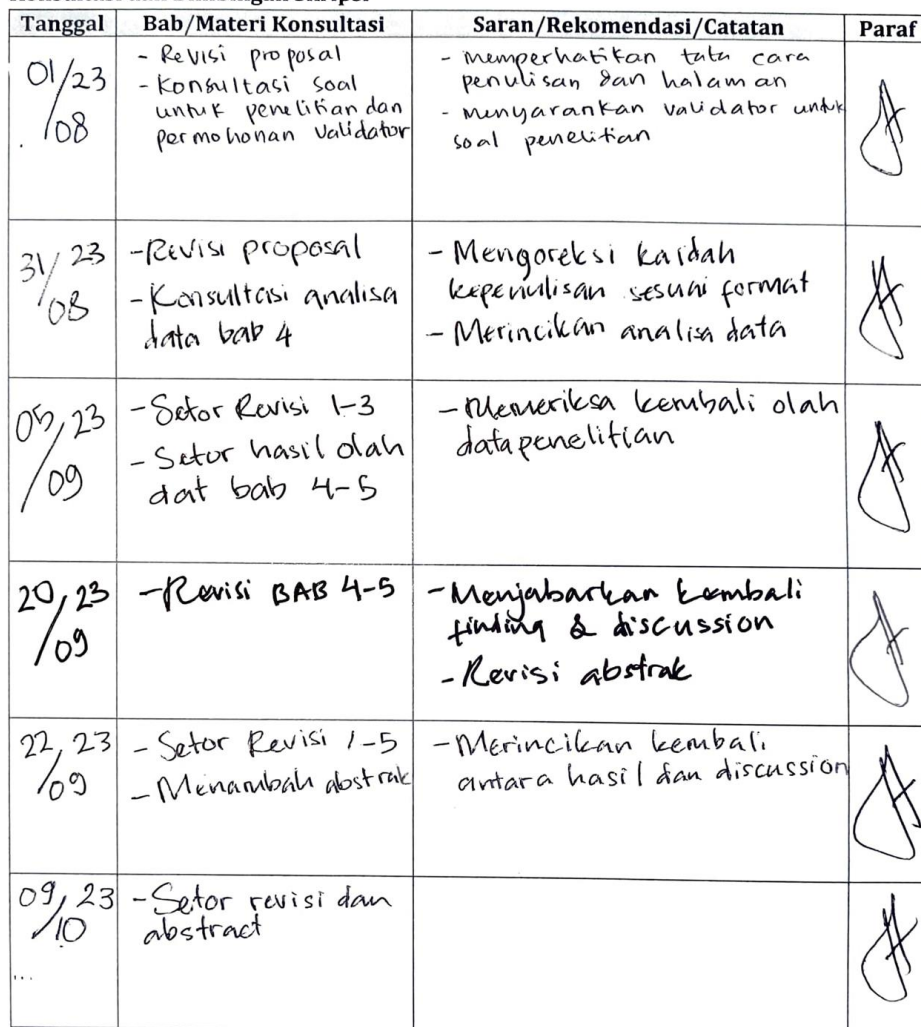 Tanggal Bab/Materi Konsultasi Saran/Rekomendasi/Catatan Paraf
01/23/08
- Revisi proposal
- Konsultasi soal
untuk penelitian dan
permohonan validator
- memperhatikan tata cara
penulisan dan halaman
- menyarankan validator untuk
soal penelitian
31/23/08
- Revisi proposal
- Konsultasi analisa
data bab 4
- Mengoreksi kaidah
kepenulisan sesuai format
- Merincikan analisa data
05/23/09
- Setor Revisi 1-3
- Setor hasil olah
dat bab 4-5
- Memeriksa kembali olah
data penelitian
20/23/09
- Revisi BAB 4-5
- Menjabarkan kembali
finding & discussion
- Revisi abstrak
22/23/09
- Setor Revisi 1-5
- Menambah abstrak
- Merincikan kembali
antara hasil dan discussion
09/23/10
- Setor revisi dan
abstract
...